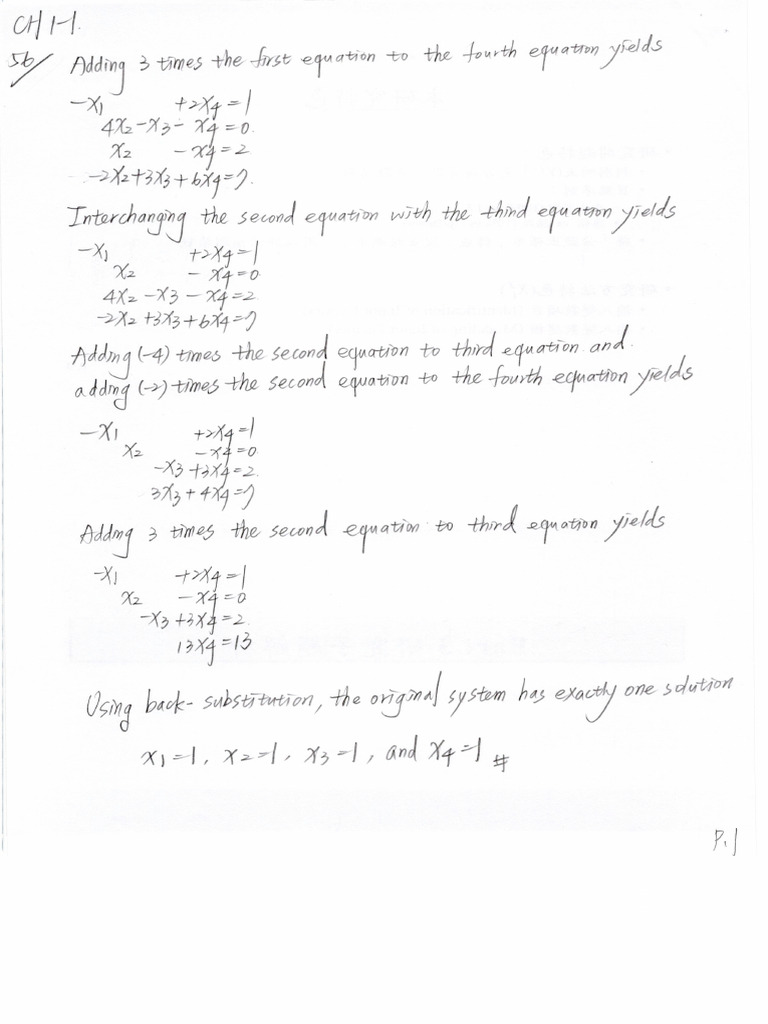 CH 1-1.
56/ Adding 3 times the first equation to the fourth equation yields
-x1 +2x4=1
4x2-x3- x4=0.
x2 - x4=2
-2x2+3x3+6x4=7.
Interchanging the second equation with the third equation yields
-x1 +2x4=1
x2 - x4=0
4x2 -x3 - x4=2
-2x2 +3x3+6x4=7
Adding (-4) times the second equation to third equation and.
adding (-2) times the second equation to the fourth equation yields
-x1 +2x4=1
x2 -x4=0
-x3 +3x4=2.
3x3+4x4=7
Adding 3 times the second equation to third equation yields
-x1 +2x4=1
x2 -x4=0
-x3 +3x4=2.
13x4=13
Using back-substitution, the original system has exactly one solution
x1=1, x2=1, x3=1, and x4=1 #
P.1